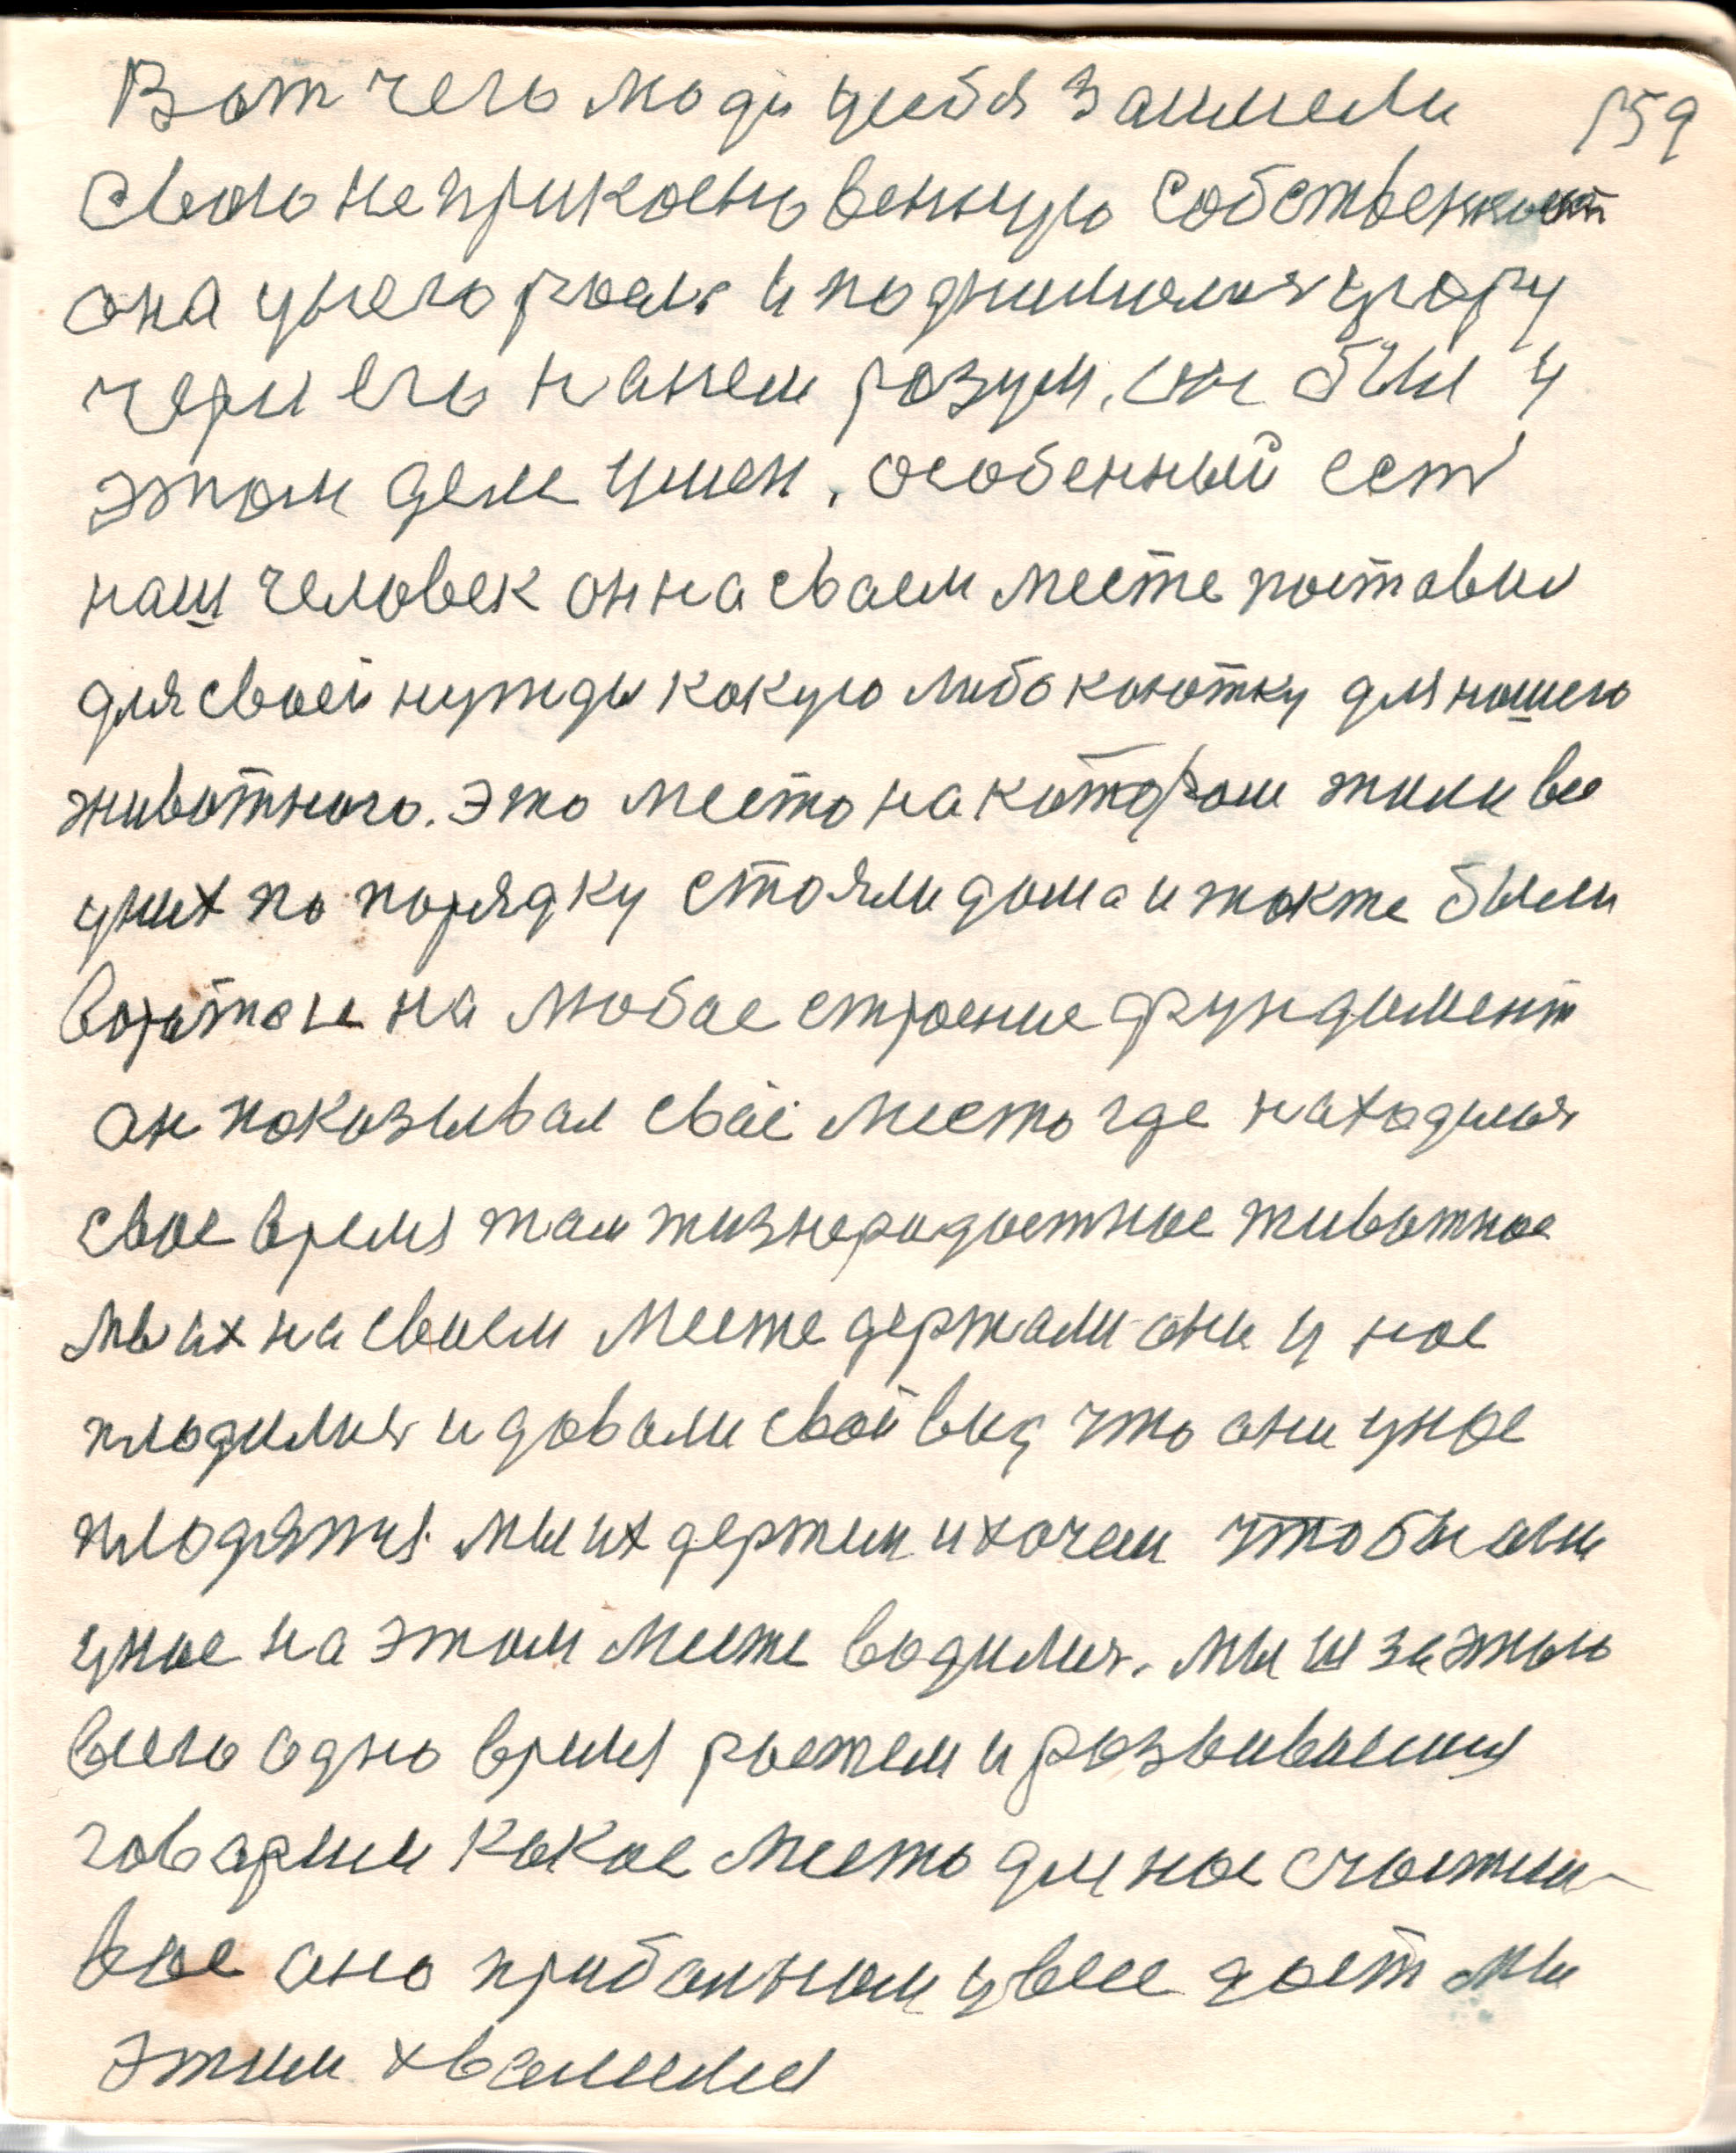 Вот чего люди у себя заимели 159
свою неприкосновенную собственност
она у него росла и поднималася угору
через его нанем розум, он был у
этом деле умен, особенный ест
наш человек он на сваем месте поставил
для своей нужды кокую либо канотку для нашего
животного. это место на котором жили все
у них по порядку стояли дома и также были
варатоне на любое строение фундамент
он показывал своё место где находился
свое время там жизнерадостное животное
мы их на своем месте держали они у нас
плодилися и довали свой вид что они у нас
плодятся. мы их держим и хочем чтобы они
у нас на этом месте водилися. мы ш за этою
всего одно время ростем и розвиваемся
говорим кокое место для нас счастли-
вое оно прибольном увсее дает мы
этим хвалимся